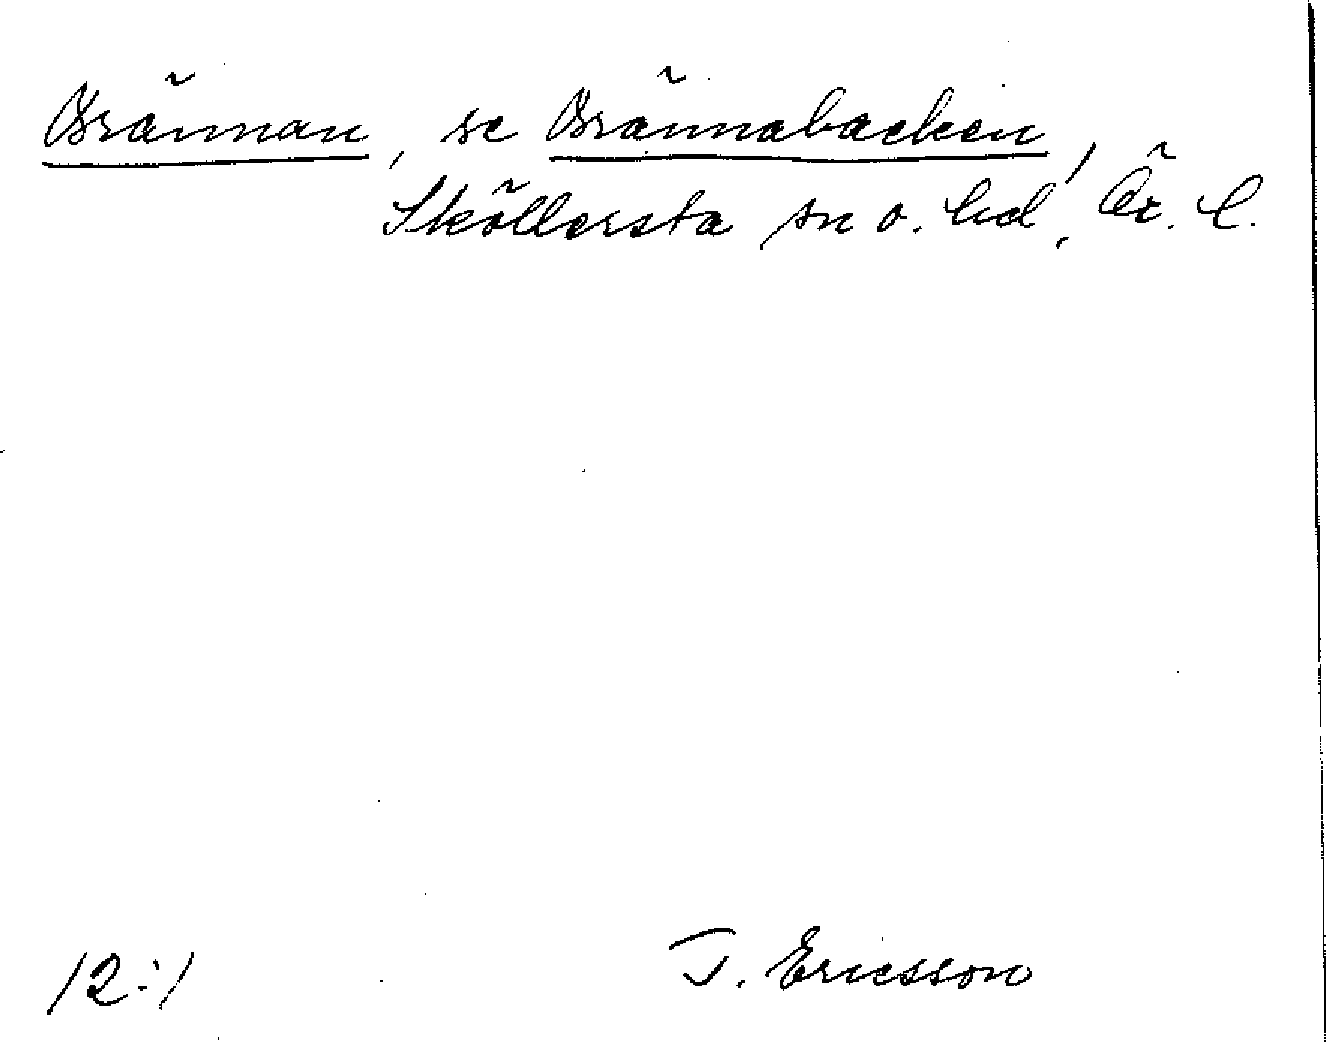 Brännan, se Brännabacken,
Sköllersta sn o. hd, Ör. l.
12:1
T. Ericsson